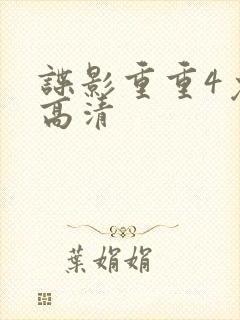 諜影重重4
高清
葉娟娟